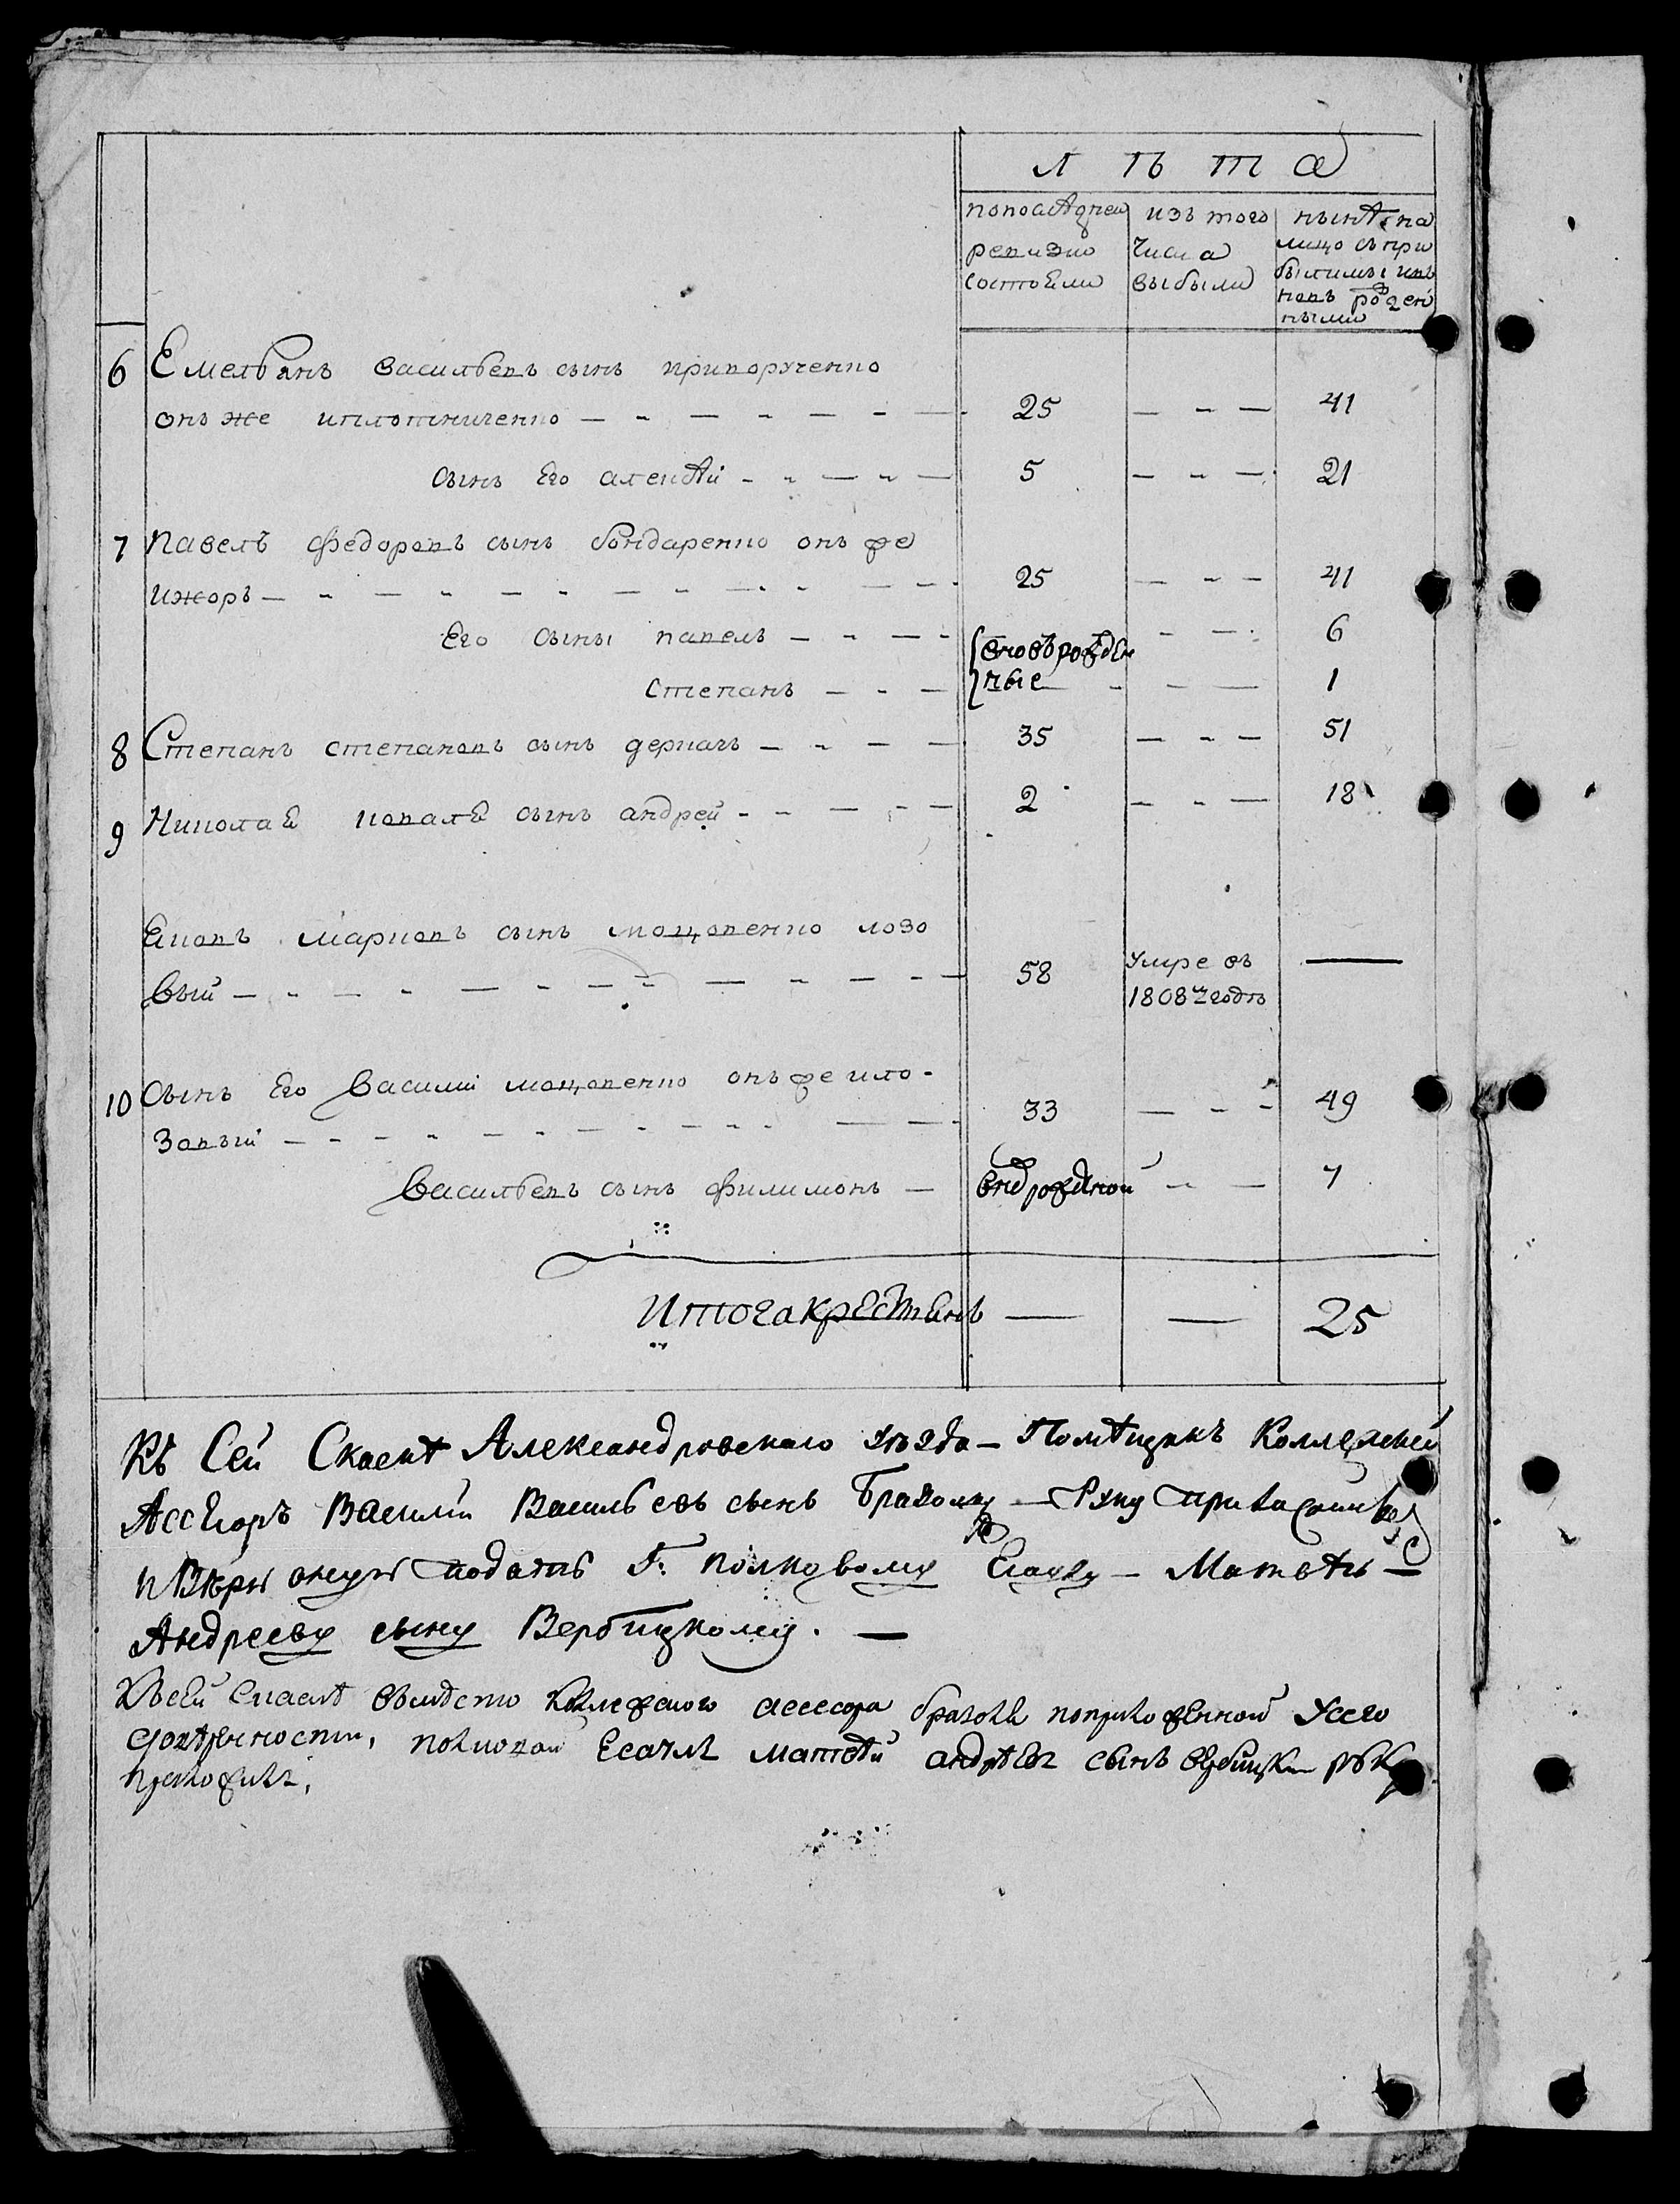 лѣта
попослѣдней
ревизіи
состоѣли
изъ того
числа
выбыли
нынѣ на
лицо съпри
былими и въ
новъ рожден
ными
6 Емельянъ васильевъ сынъ криворученко
онъ же иплотниченко — 25 — 41
сынъ его алексѣй — 5 — 21
7 Павелъ федоровъ сынъ бондаренко онъ же
ижоръ — 25 — 41
Его сыны павелъ — вновърожден — 6
Степанъ — ные — 1
8 Степанъ степановъ сынъ деркачъ — 35 — 51
9 Николаѣ коваля сынъ андрей — 2 — 18
Яковъ марковъ сынъ мацовенко лозо
вый — 58 умре въ
1808 годъ —
10 Сынъ Его Василий мацовенко онъ же ило-
зовый — 33 — 49
Васильевъ сынъ филимонъ — внорожденой — 7
Итого крестьянъ — — 25
Къ Сей Скаскѣ Александровскаго уѣзда — Помѣщикъ Коллежскій
Ассесоръ Василий Васильевъ сынъ — Руку приложилъ
и Вѣрю оную подать Г: полковому Есаулу — Матвѣю —
Андрееву сыну Вербицкому. —
Ксей Скаске вмѣсто колежского асесора попрозбенной у сего
довѣренности, полковой Есаулъ матвѣй андрѣевъ сынъ вербицкий руку
приложилъ,